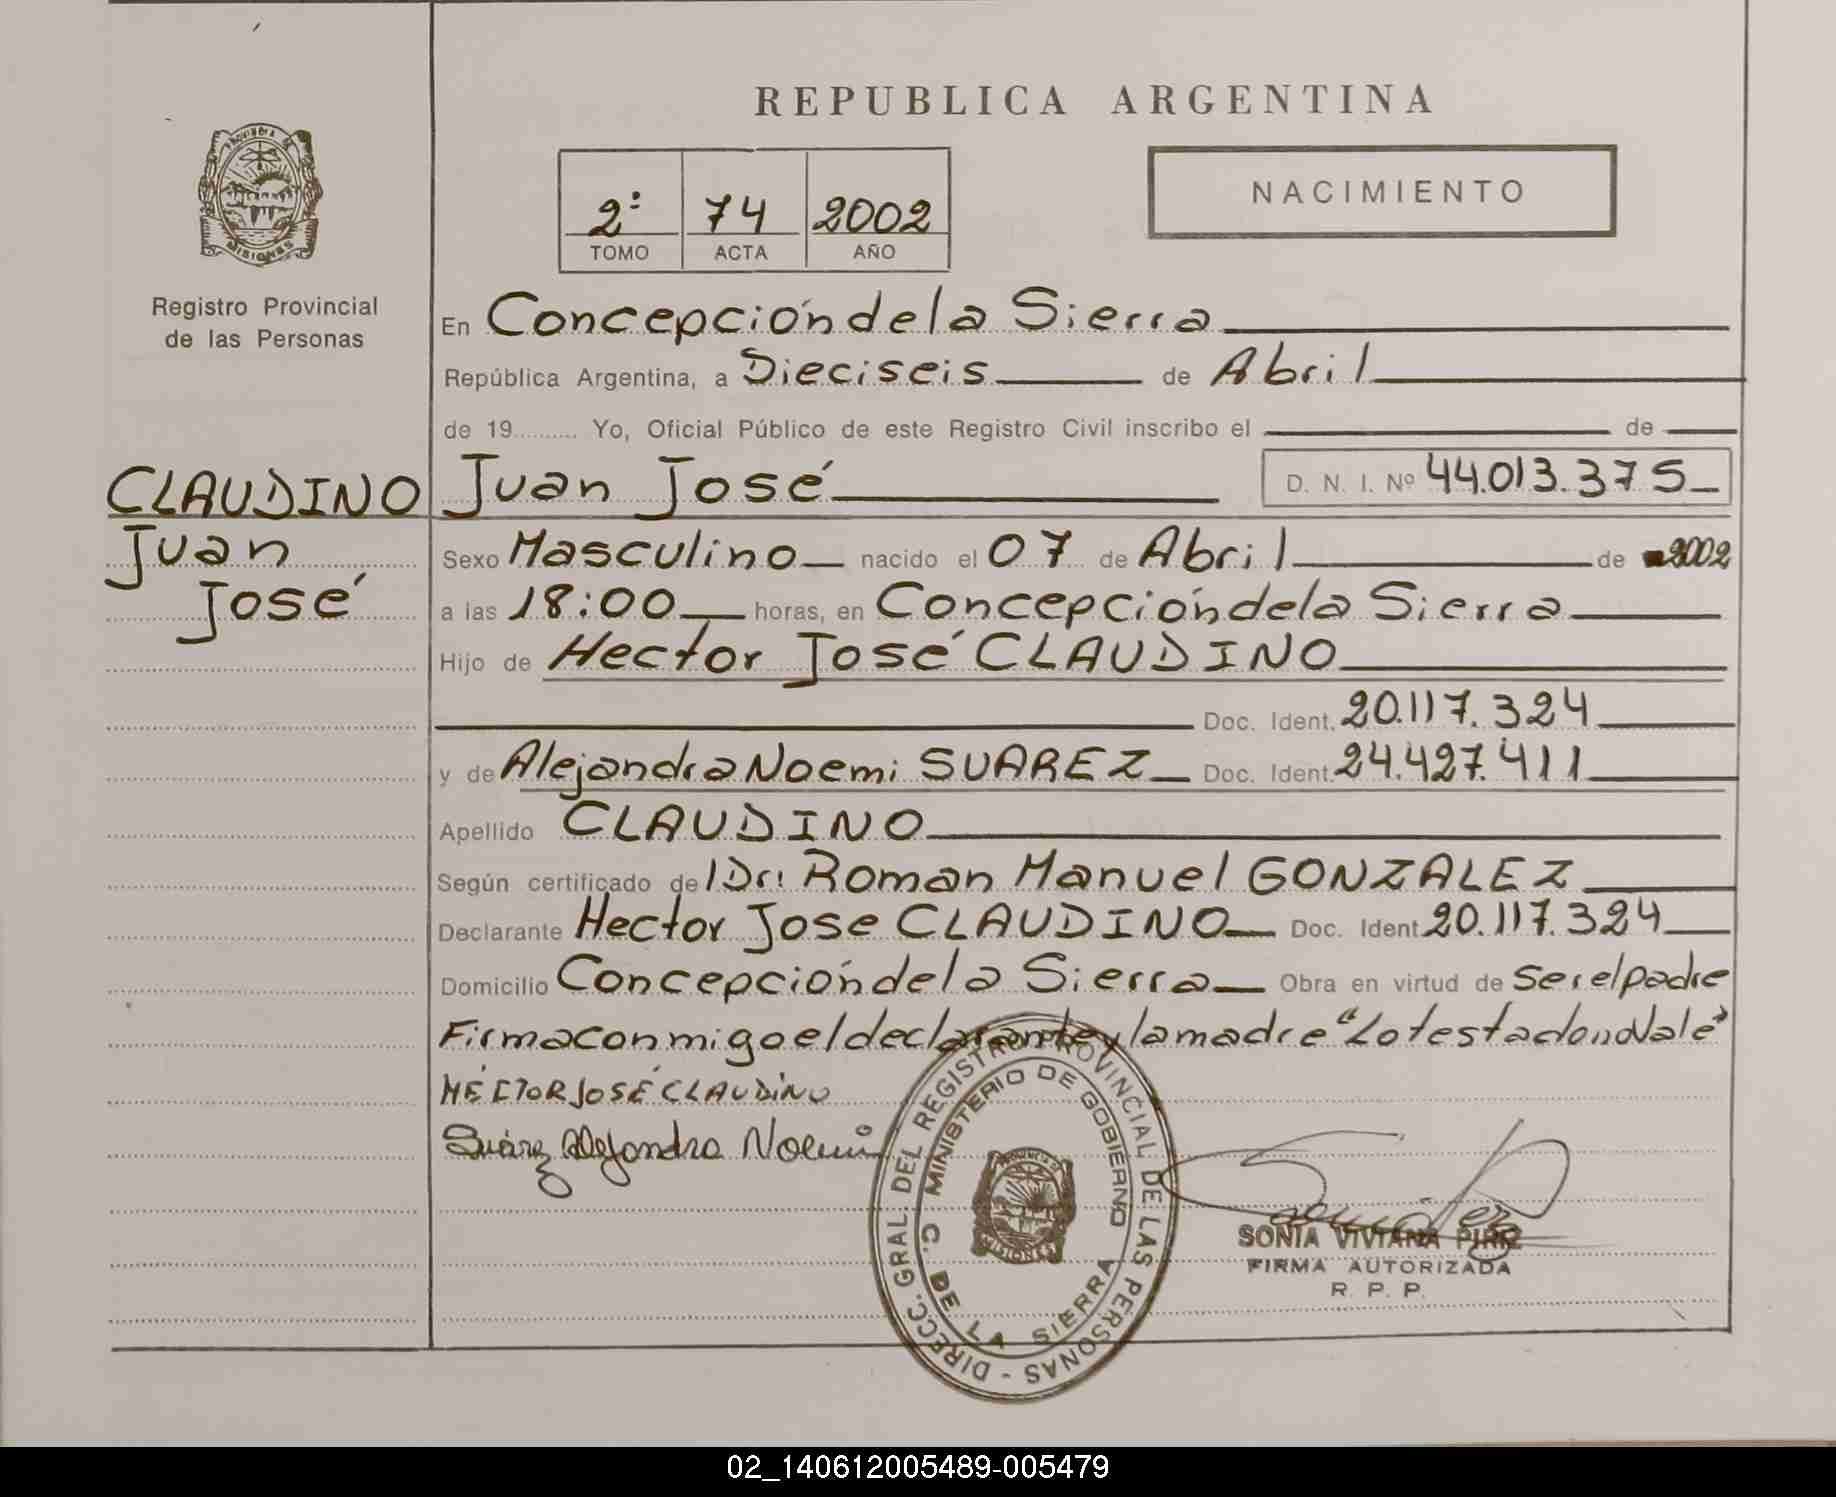 REPUBLICA ARGENTINA
PROVINCIA DE
MISIONES
Registro Provincial
de las Personas
2º 74 2002
TOMO ACTA AÑO
NACIMIENTO
En Concepción de la Sierra
República Argentina, a Dieciseis de Abril
de 19.......... Yo, Oficial Público de este Registro Civil inscribo el de
CLAUDINO
Juan
José
Juan José D. N. I. Nº 44.013.375
Sexo Masculino nacido el 07 de Abril de 2002
a las 18:00 horas, en Concepción de la Sierra
Hijo de Hector José CLAUDINO
Doc. Ident. 20.117.324
y de Alejandra Noemi SUAREZ Doc. Ident. 24.427.411
Apellido CLAUDINO
Según certificado del Dr: Roman Manuel GONZALEZ
Declarante Hector Jose CLAUDINO Doc. Ident. 20.117.324
Domicilio Concepción de la Sierra Obra en virtud de ser el padre
Firma conmigo el declarante y la madre "Lo testado no Vale"
HÉCTOR JOSÉ CLAUDINO
Suárez Alejandra Noemi
DIRECC. GRAL. DEL REGISTRO PROVINCIAL DE LAS PERSONAS -
MINISTERIO DE GOBIERNO
C. DE LA SIERRA
MISIONES
SONIA VIVIANA PIRIZ
FIRMA AUTORIZADA
R. P. P.
02_140612005489-005479